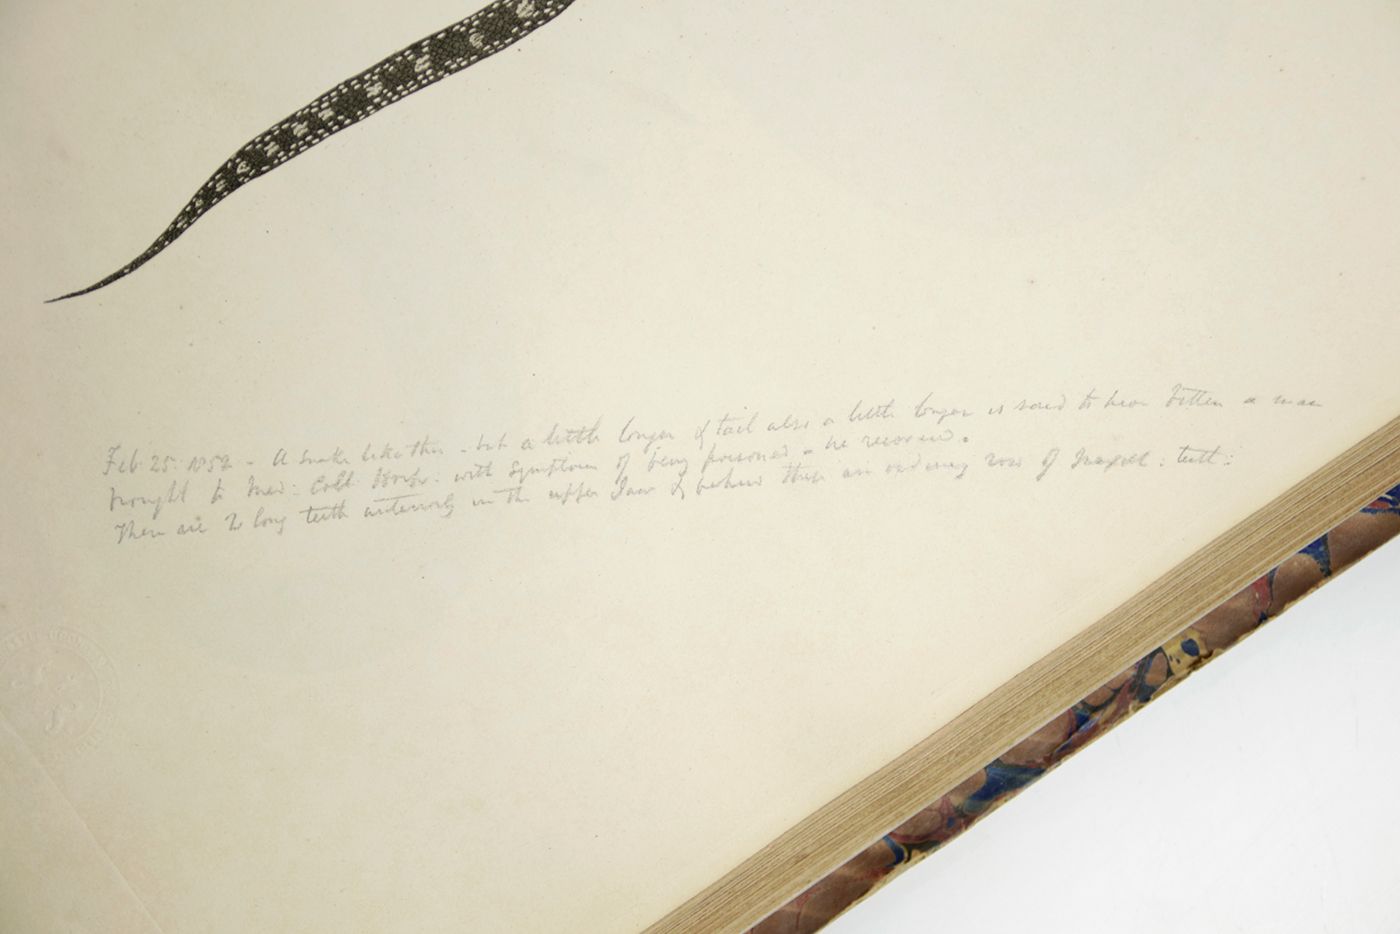 Feb 25. 1852 - A snake like this - but a little longer & tail also a little longer is said to have bitten a man
brought to Med: Coll: Hosp. with symptoms of being poisoned - he recovered.
There are 2 long teeth anteriorly in the upper Jaw & behind these an ordinary row of teeth: